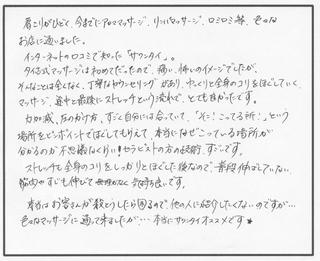 肩こりがひどく、今までにアロママッサージ、リンパマッサージ、ロミロミ等、色々な
お店に通いました。
インターネットの口コミで知った「サワンタイ」。
タイ古式マッサージは初めてだったので、痛い、怖いのイメージでしたが、
そんなことは全くなく、丁寧なカウンセリングがあり、ゆっくりと全身のコリをほぐしていく
マッサージ、途中と最後にストレッチという流れで、とても良かったです。
力加減、圧のかけ方、すごく自分に合っていて、「そこ！こってる所！」という
場所をピンポイントでほぐしてもらえて、本当になぜこっている場所が
分かるのか不思議なくらい！セラピストの方の技術、すごいです。
ストレッチも全身のコリをしっかりとほぐした後なので、普段伸ばしていない
筋肉やすじも伸びて無理がなく気持ち良いです。
本当はお客さんが殺とうしたら困るので、他の人に紹介したくないのですが…
色々なマッサージに通って来ましたが…本当にサワンタイオススメです★